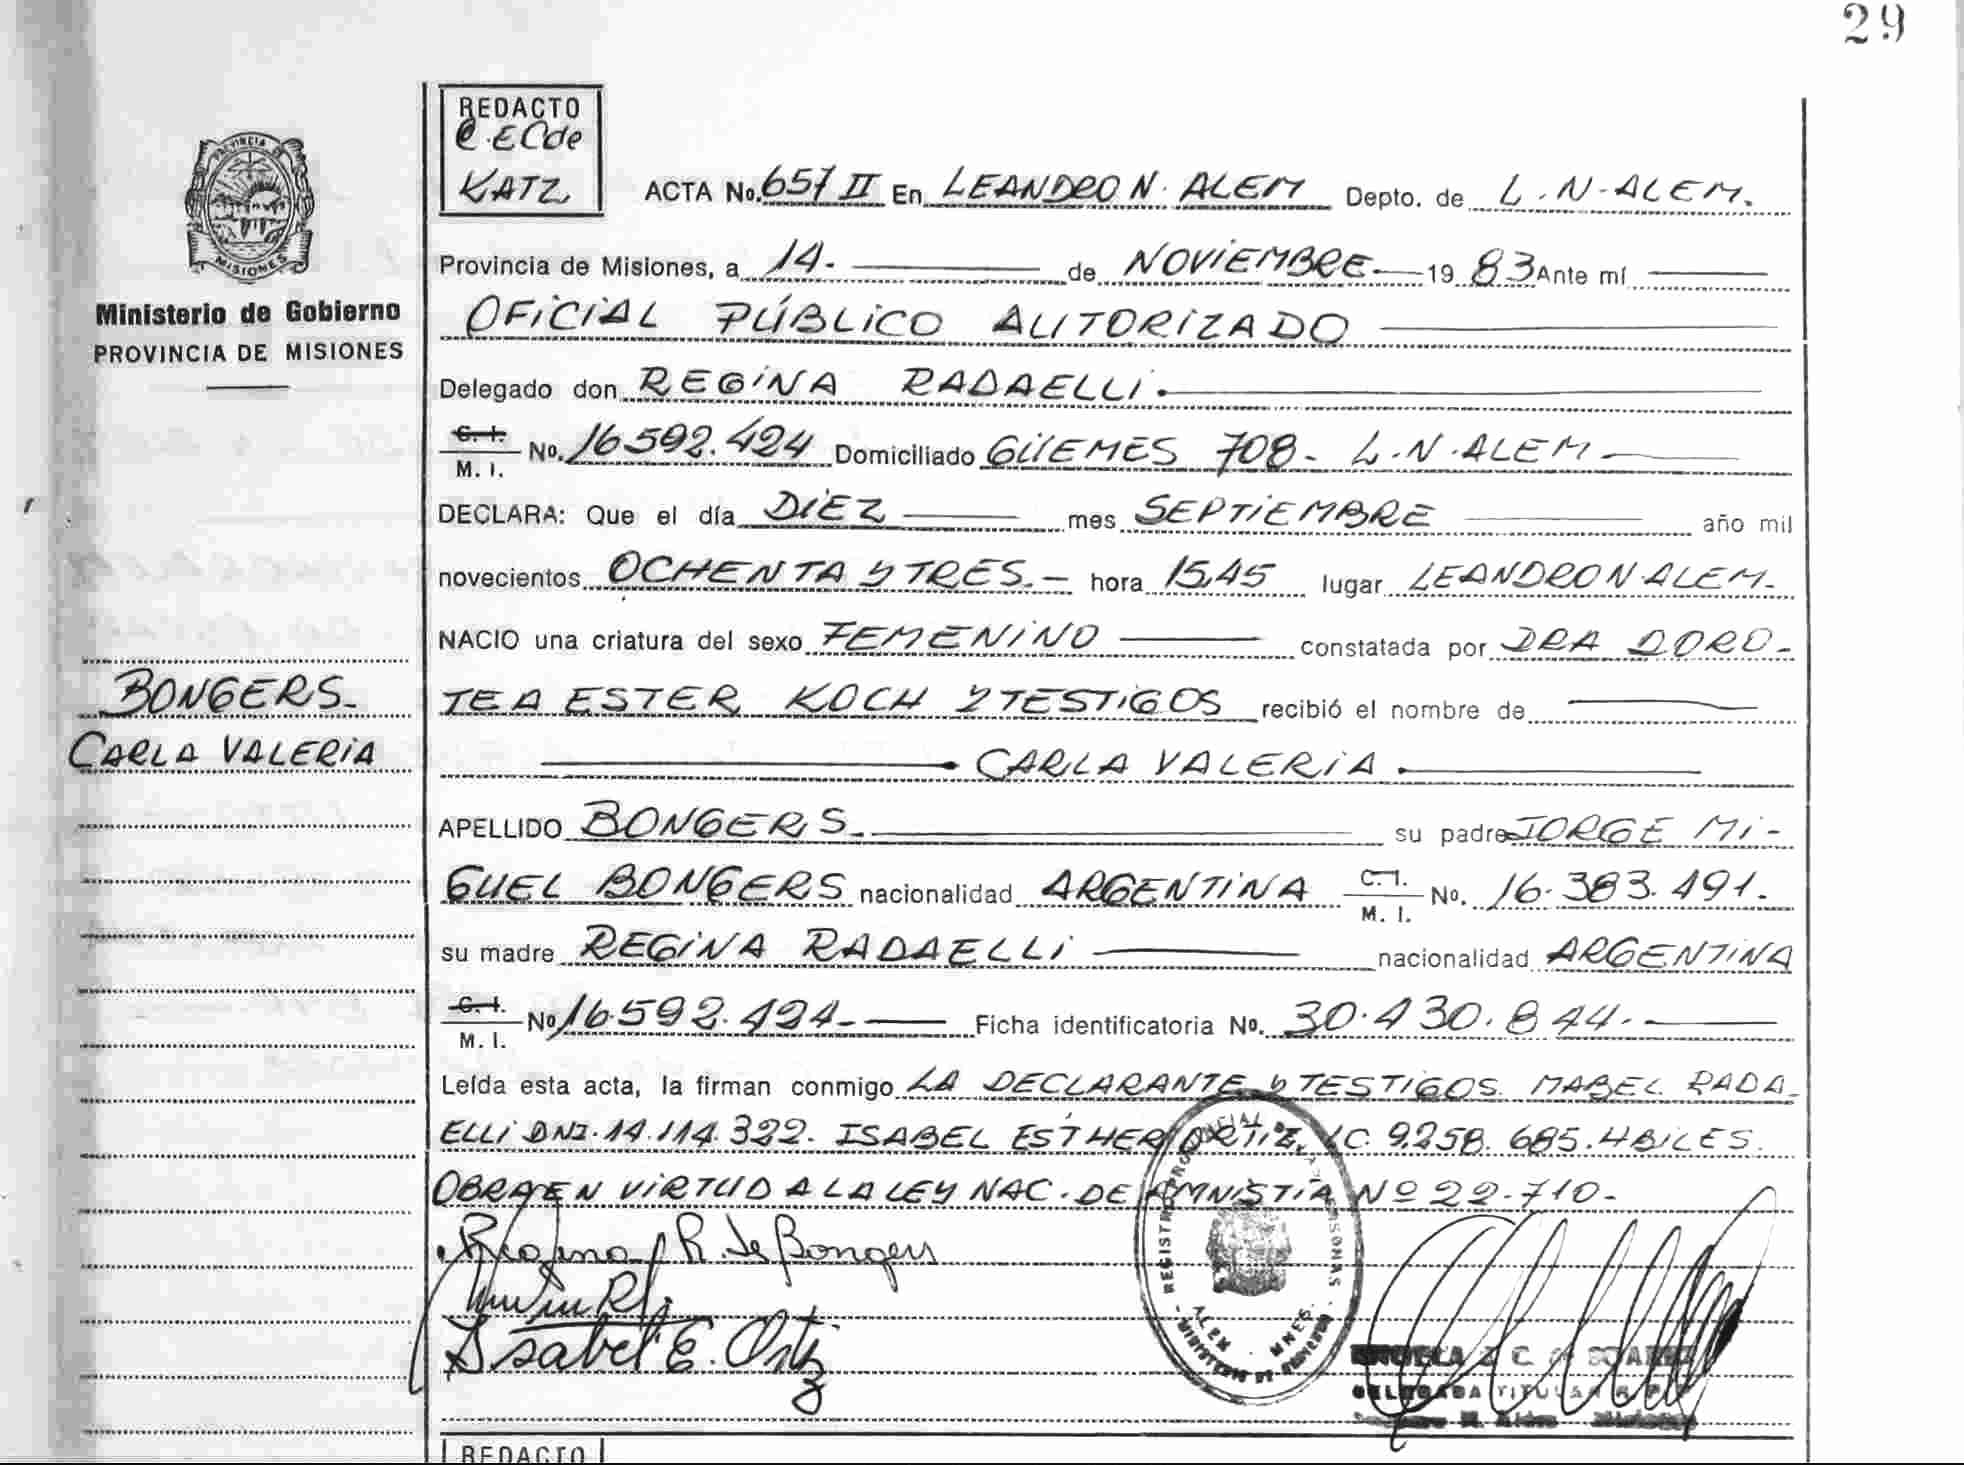 29
REDACTO
C. E C de
KATZ
PROVINCIA DE
MISIONES
Ministerio de Gobierno
PROVINCIA DE MISIONES
ACTA No. 657 II En LEANDRO N. ALEM Depto. de L. N. ALEM.
Provincia de Misiones, a 14. de NOVIEMBRE 19 83 Ante mí
OFICIAL PÚBLICO AUTORIZADO
Delegado don REGINA RADAELLI.
C. I. / M. I. No. 16.592.424 Domiciliado GÜEMES 708. L. N. ALEM.
DECLARA: Que el día DIEZ mes SEPTIEMBRE año mil
novecientos OCHENTA Y TRES. hora 15,45 lugar LEANDRO N. ALEM.
NACIO una criatura del sexo FEMENINO constatada por DRA DORO-
BONGERS.
TEA ESTER KOCH Y TESTIGOS recibió el nombre de
CARLA VALERIA
CARLA VALERIA.
APELLIDO BONGERS. su padre JORGE MI-
GUEL BONGERS nacionalidad ARGENTINA C. I. / M. I. No. 16.383.491.
su madre REGINA RADAELLI nacionalidad ARGENTINA
C. I. / M. I. No 16.592.424. Ficha identificatoria No. 30.430.844.
Leída esta acta, la firman conmigo LA DECLARANTE Y TESTIGOS. MABEL RADA-
ELLI DNI. 14.114.322. ISABEL ESTHER ORTIZ LC. 9.258.685. HBILES.
OBRA EN VIRTUD A LA LEY NAC. DE AMNISTIA Nº 22.710.
Regina R. de Bongers
Isabel E. Ortiz
REGISTRO PROVINCIAL DE LAS PERSONAS
ALEM - MNES.
MINISTERIO DE GOBIERNO
C. de SUAREZ
DELEGADA TITULAR R. P.
REDACTO